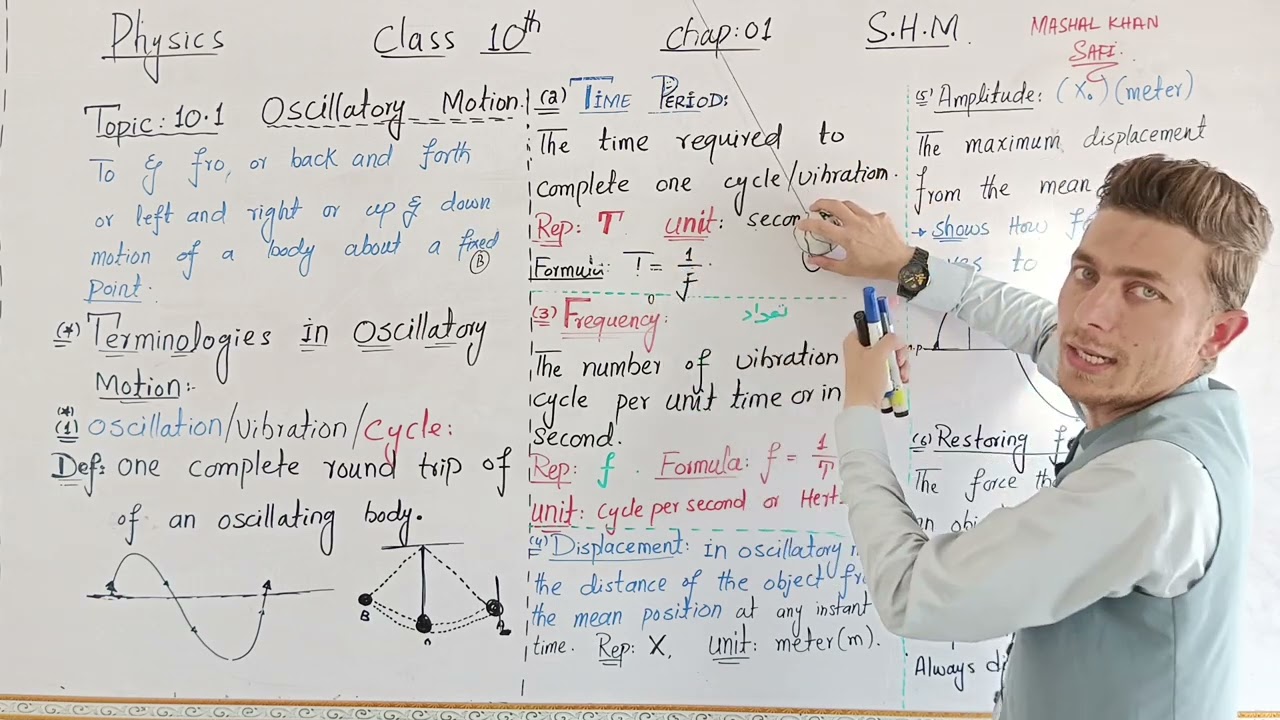 Physics
Class 10th
Chap:01
S.H.M.
MASHAL KHAN
SAFI.
Topic: 10.1 Oscillatory Motion.
To & fro, or back and forth
or left and right or up & down
motion of a body about a fixed
point.
(*) Terminologies in Oscillatory
Motion:-
(*)
(1) Oscillation/vibration/cycle:
Def: one complete round trip of
of an oscillating body.
B
A
(2) TIME PERIOD:
The time required to
complete one cycle/vibration.
Rep: T unit: secon
B
Formula: T = 1/f
(3) Frequency:
تعداد
The number of vibration
cycle per unit time or in
second.
Rep: f . Formula: f = 1/T
unit: cycle per second or Hert
(4) Displacement: in oscillatory
the distance of the object fr
the mean position at any instant
time. Rep: X, unit: meter(m).
(5) Amplitude: (X₀) (meter)
The maximum displacement
from the mean
→ shows How f
to
(6) Restoring f
The force th
an obj
Always di